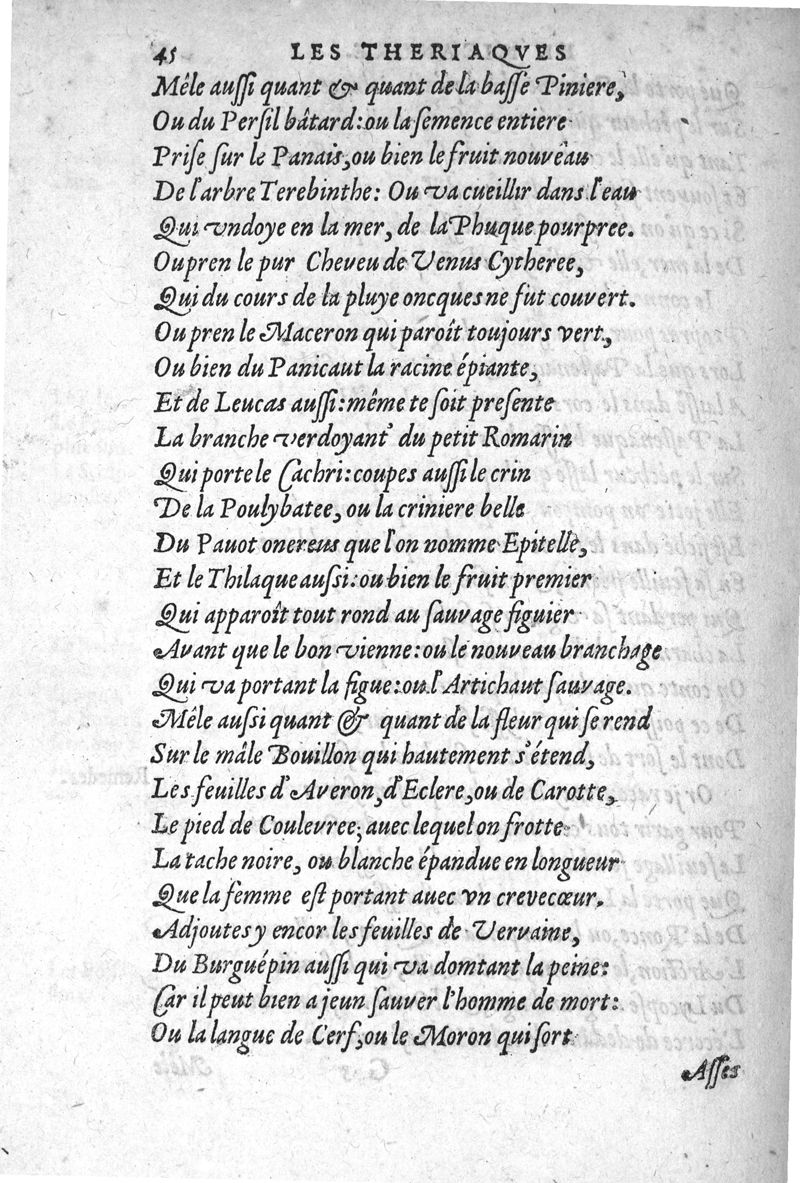 45 LES THERIAQVES
Mêle aussi quant & quant de la basse Piniere,
Ou du Persil bâtard: ou la semence entiere
Prise sur le Panais, ou bien le fruit nouveau
De l'arbre Terebinthe: Ou va cueillir dans l'eau
Qui vndoye en la mer, de la Phuque pourpree.
Ou pren le pur Cheveu de Venus Cytheree,
Qui du cours de la pluye oncques ne fut couvert.
Ou pren le Maceron qui paroît toujours vert,
Ou bien du Panicaut la racine épiante,
Et de Leucas aussi: même te soit presente
La branche verdoyant' du petit Romarin
Qui porte le Cachri: coupes aussi le crin
De la Poulybatee, ou la criniere belle
Du Pavot onereus que l'on nomme Epitelle,
Et le Thilaque aussi: ou bien le fruit premier
Qui apparoît tout rond au sauvage figuier
Avant que le bon vienne: ou le nouveau branchage
Qui va portant la figue: ou l'Artichaut sauvage.
Mêle aussi quant & quant de la fleur qui se rend
Sur le mâle Bouillon qui hautement s'étend,
Les feuilles d'Averon, d'Eclere, ou de Carotte,
Le pied de Coulevree, avec lequel on frotte
La tache noire, ou blanche épandue en longueur
Que la femme est portant avec vn crevecœur.
Adjoutes y encor les feuilles de Vervaine,
Du Burguépin aussi qui va domtant la peine:
Car il peut bien a jeun sauver l'homme de mort:
Ou la langue de Cerf, ou le Moron qui sort
Asses